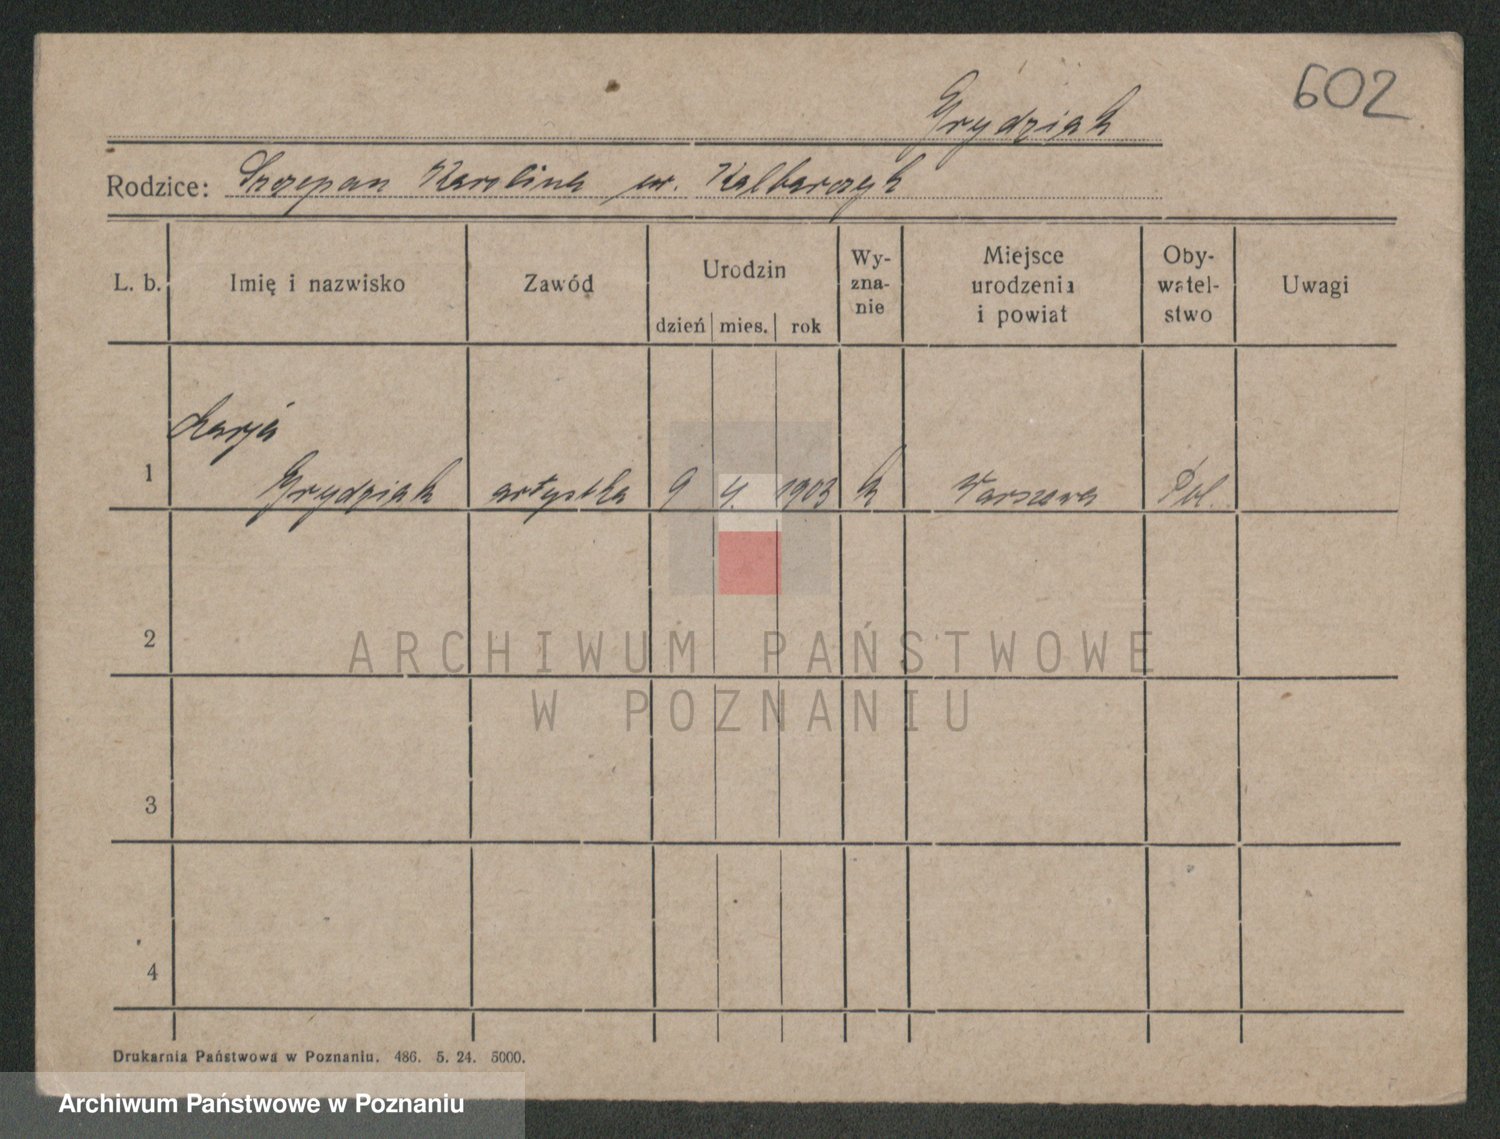 602
Grydziak
Rodzice: Szczepan Karolina ur. Kalbarczyk
L. b.
Imię i nazwisko
Zawód
Urodzin
dzień mies. rok
Wy-
zna-
nie
Miejsce
urodzenia
i powiat
Oby-
watel-
stwo
Uwagi
Marja
1 Grydziak artystka 9 4. 1903 k Warszawa Pol.
2
3
4
ARCHIWUM PAŃSTWOWE
W POZNANIU
Drukarnia Państwowa w Poznaniu. 486. 5. 24. 5000.
Archiwum Państwowe w Poznaniu